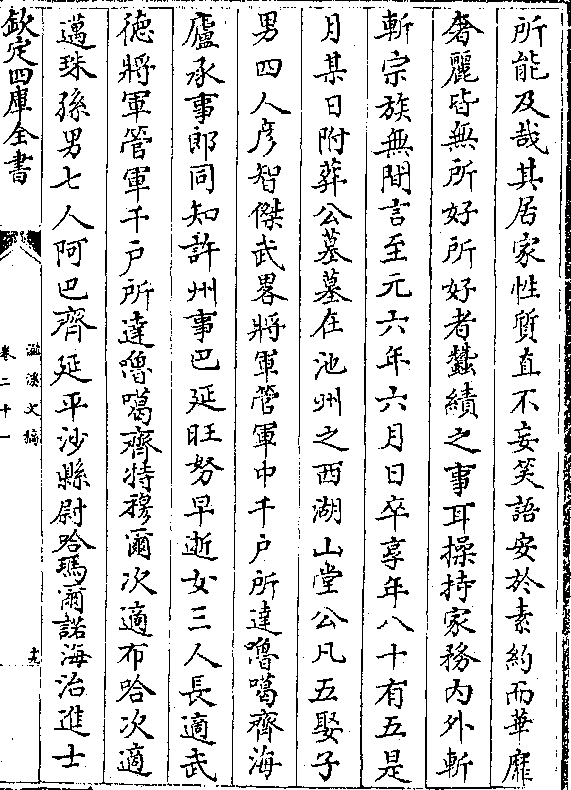 所能及哉其居家性質直不妄笑語安於素約而華靡
奢麗皆無所好所好者蠶績之事耳操持家務内外斬
斬宗族無間言至元六年六月日卒享年八十有五是
月某日附葬公墓墓在池州之西湖山堂公凡五娶子
男四人彦智傑武畧將軍管軍中千戶所達嚕噶齊海
廬承事郎同知許州事巴延旺努早逝女三人長適武
徳將軍管軍千戶所達嚕噶齊特穆爾次適布哈次適
邁珠孫男七人阿巴齊延平沙縣尉哈瑪爾諾海治進士
欽定四庫全書
滋溪文稿
卷二十一
十九